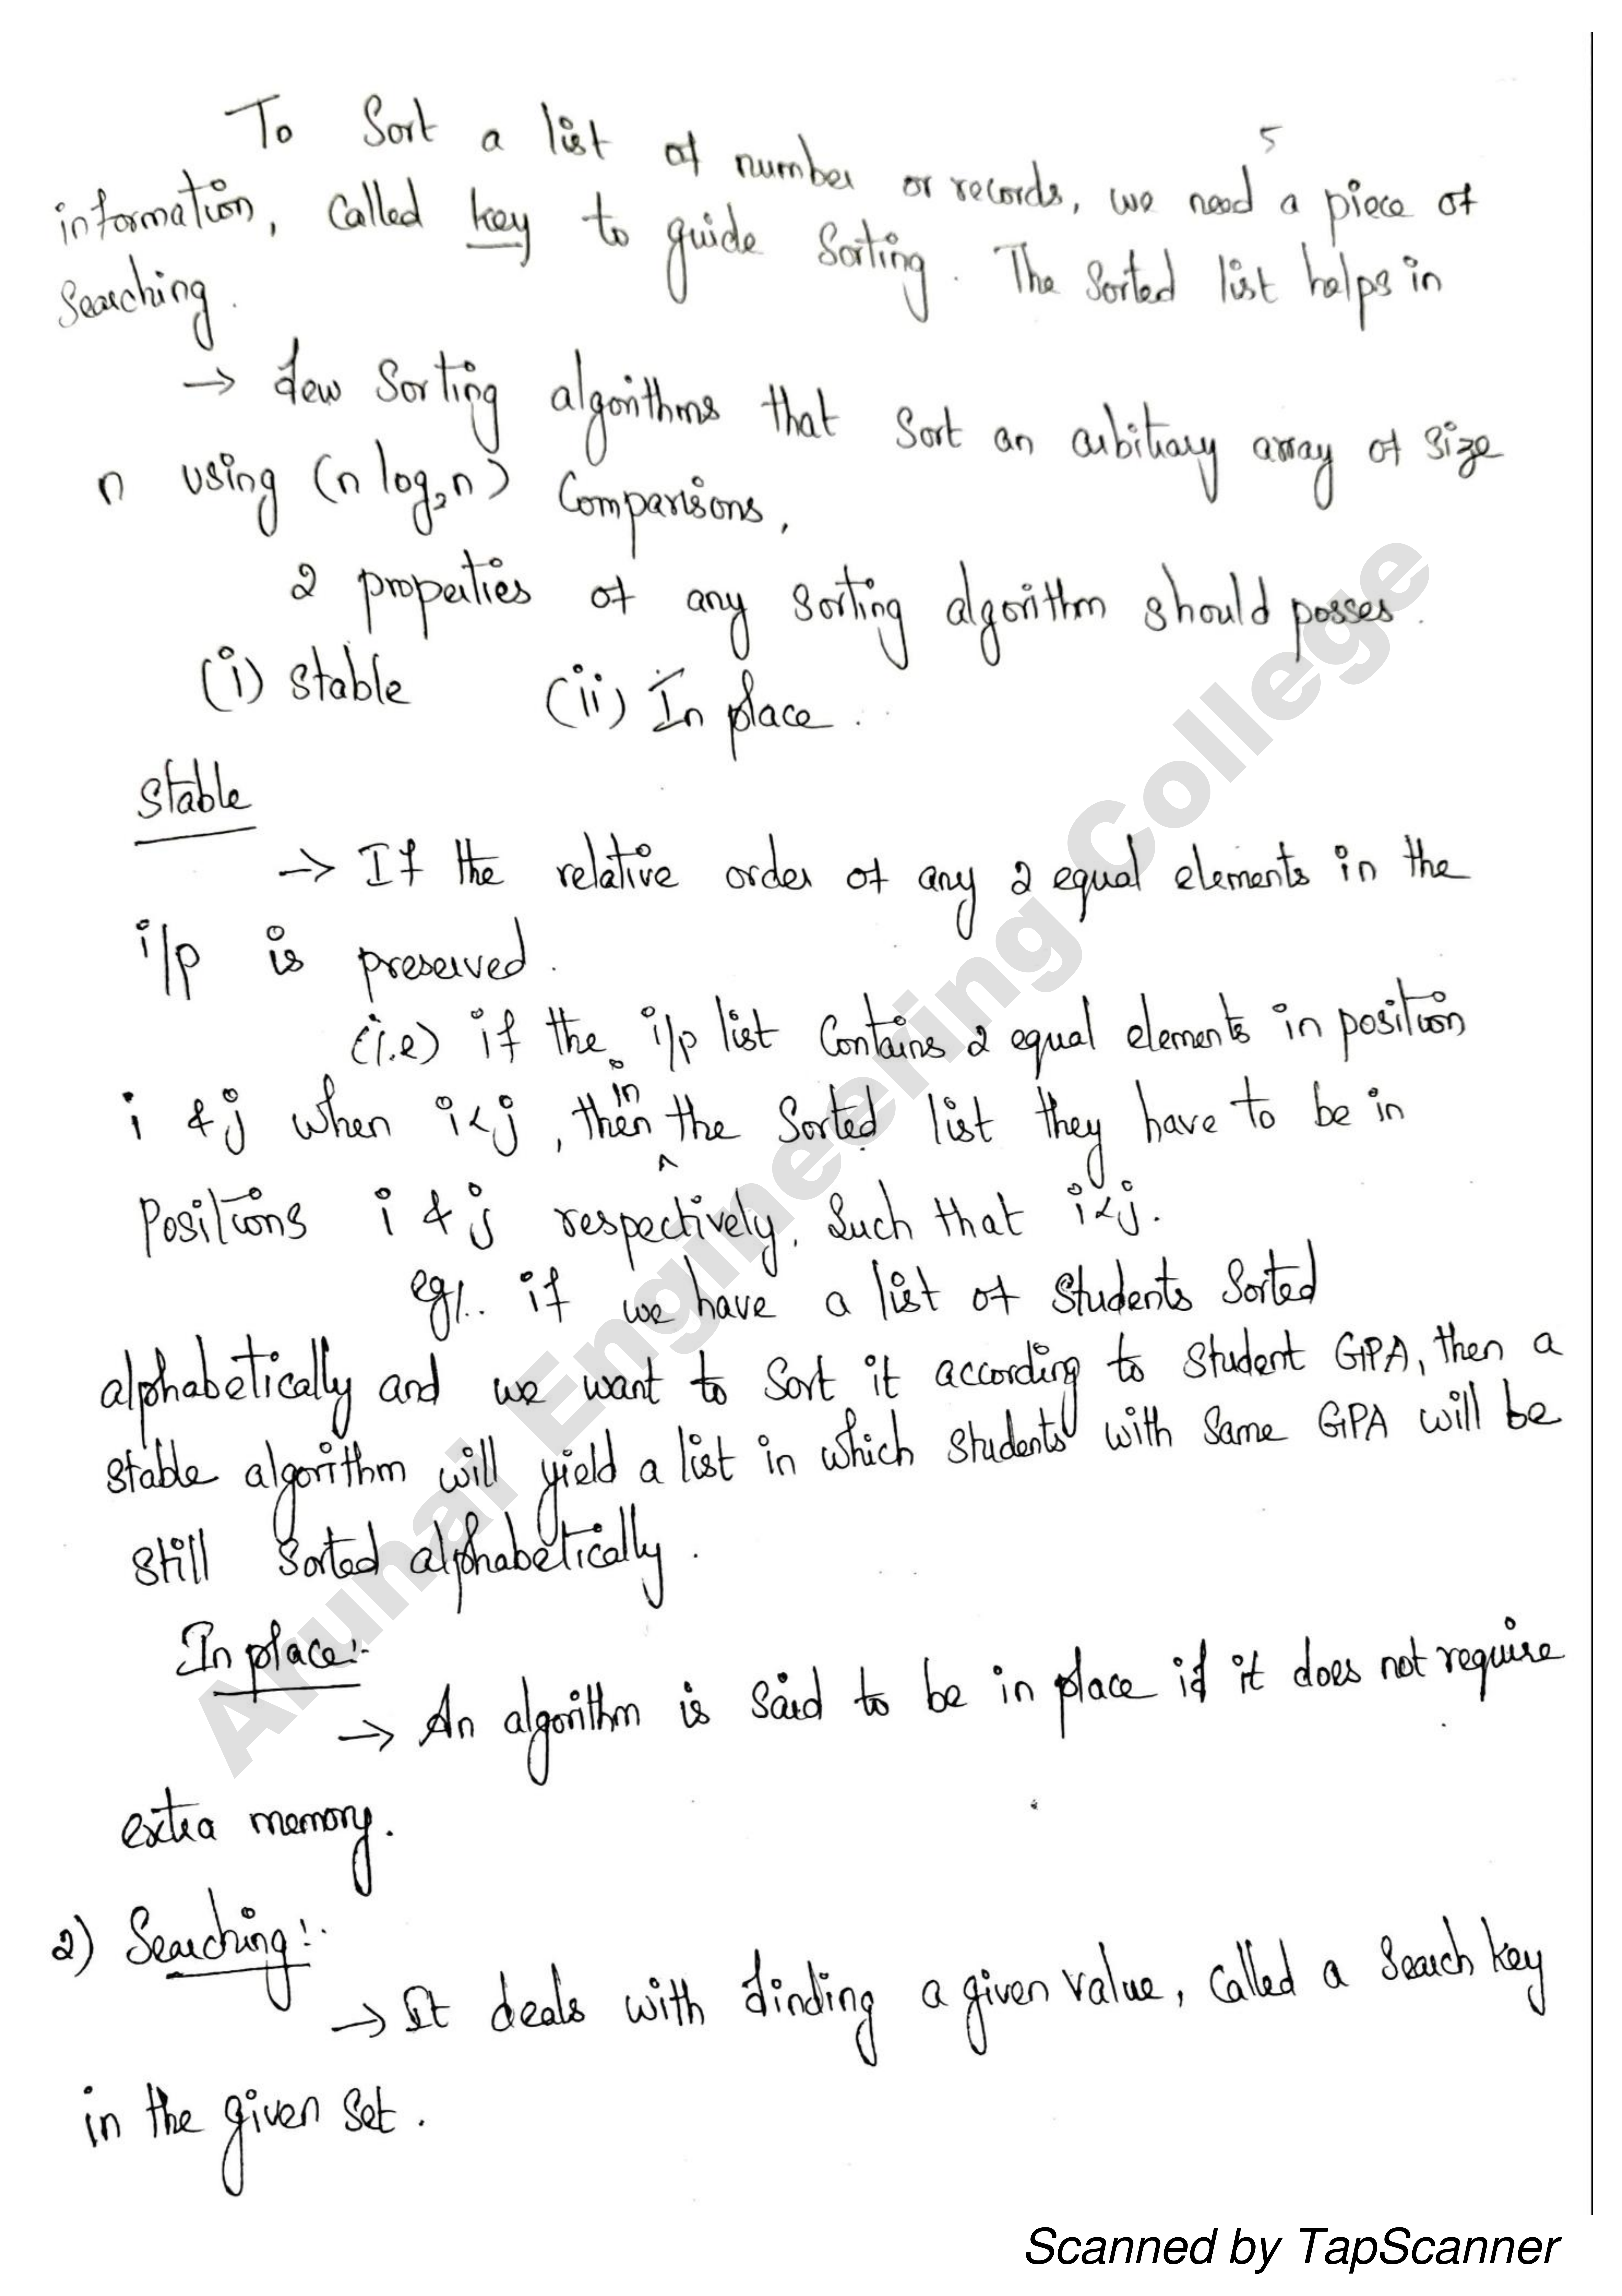 5
To Sort a list of number or records, we need a piece of
information, called key to guide Sorting. The Sorted list helps in
Searching.
→ few Sorting algorithms that Sort an arbitrary array of size
n using (n log₂n) Comparisons,
2 properties of any sorting algorithm should posses.
(i) stable (ii) In place.
stable
→ If the relative order of any 2 equal elements in the
i/p is preserved.
(i.e) if the i/p list Contains 2 equal elements in position
i & j when i<j, then in the Sorted list they have to be in
Positions i & j respectively. Such that i<j.
eg/.. if we have a list of students Sorted
alphabetically and we want to Sort it according to student GPA, then a
stable algorithm will yield a list in which students with Same GPA will be
still Sorted alphabetically.
In place:-
→ An algorithm is said to be in place if it does not require
extra memory.
2) Searching:-
→ It deals with finding a given value, Called a Search key
in the given Set.
Arunai Engineering College
Scanned by TapScanner